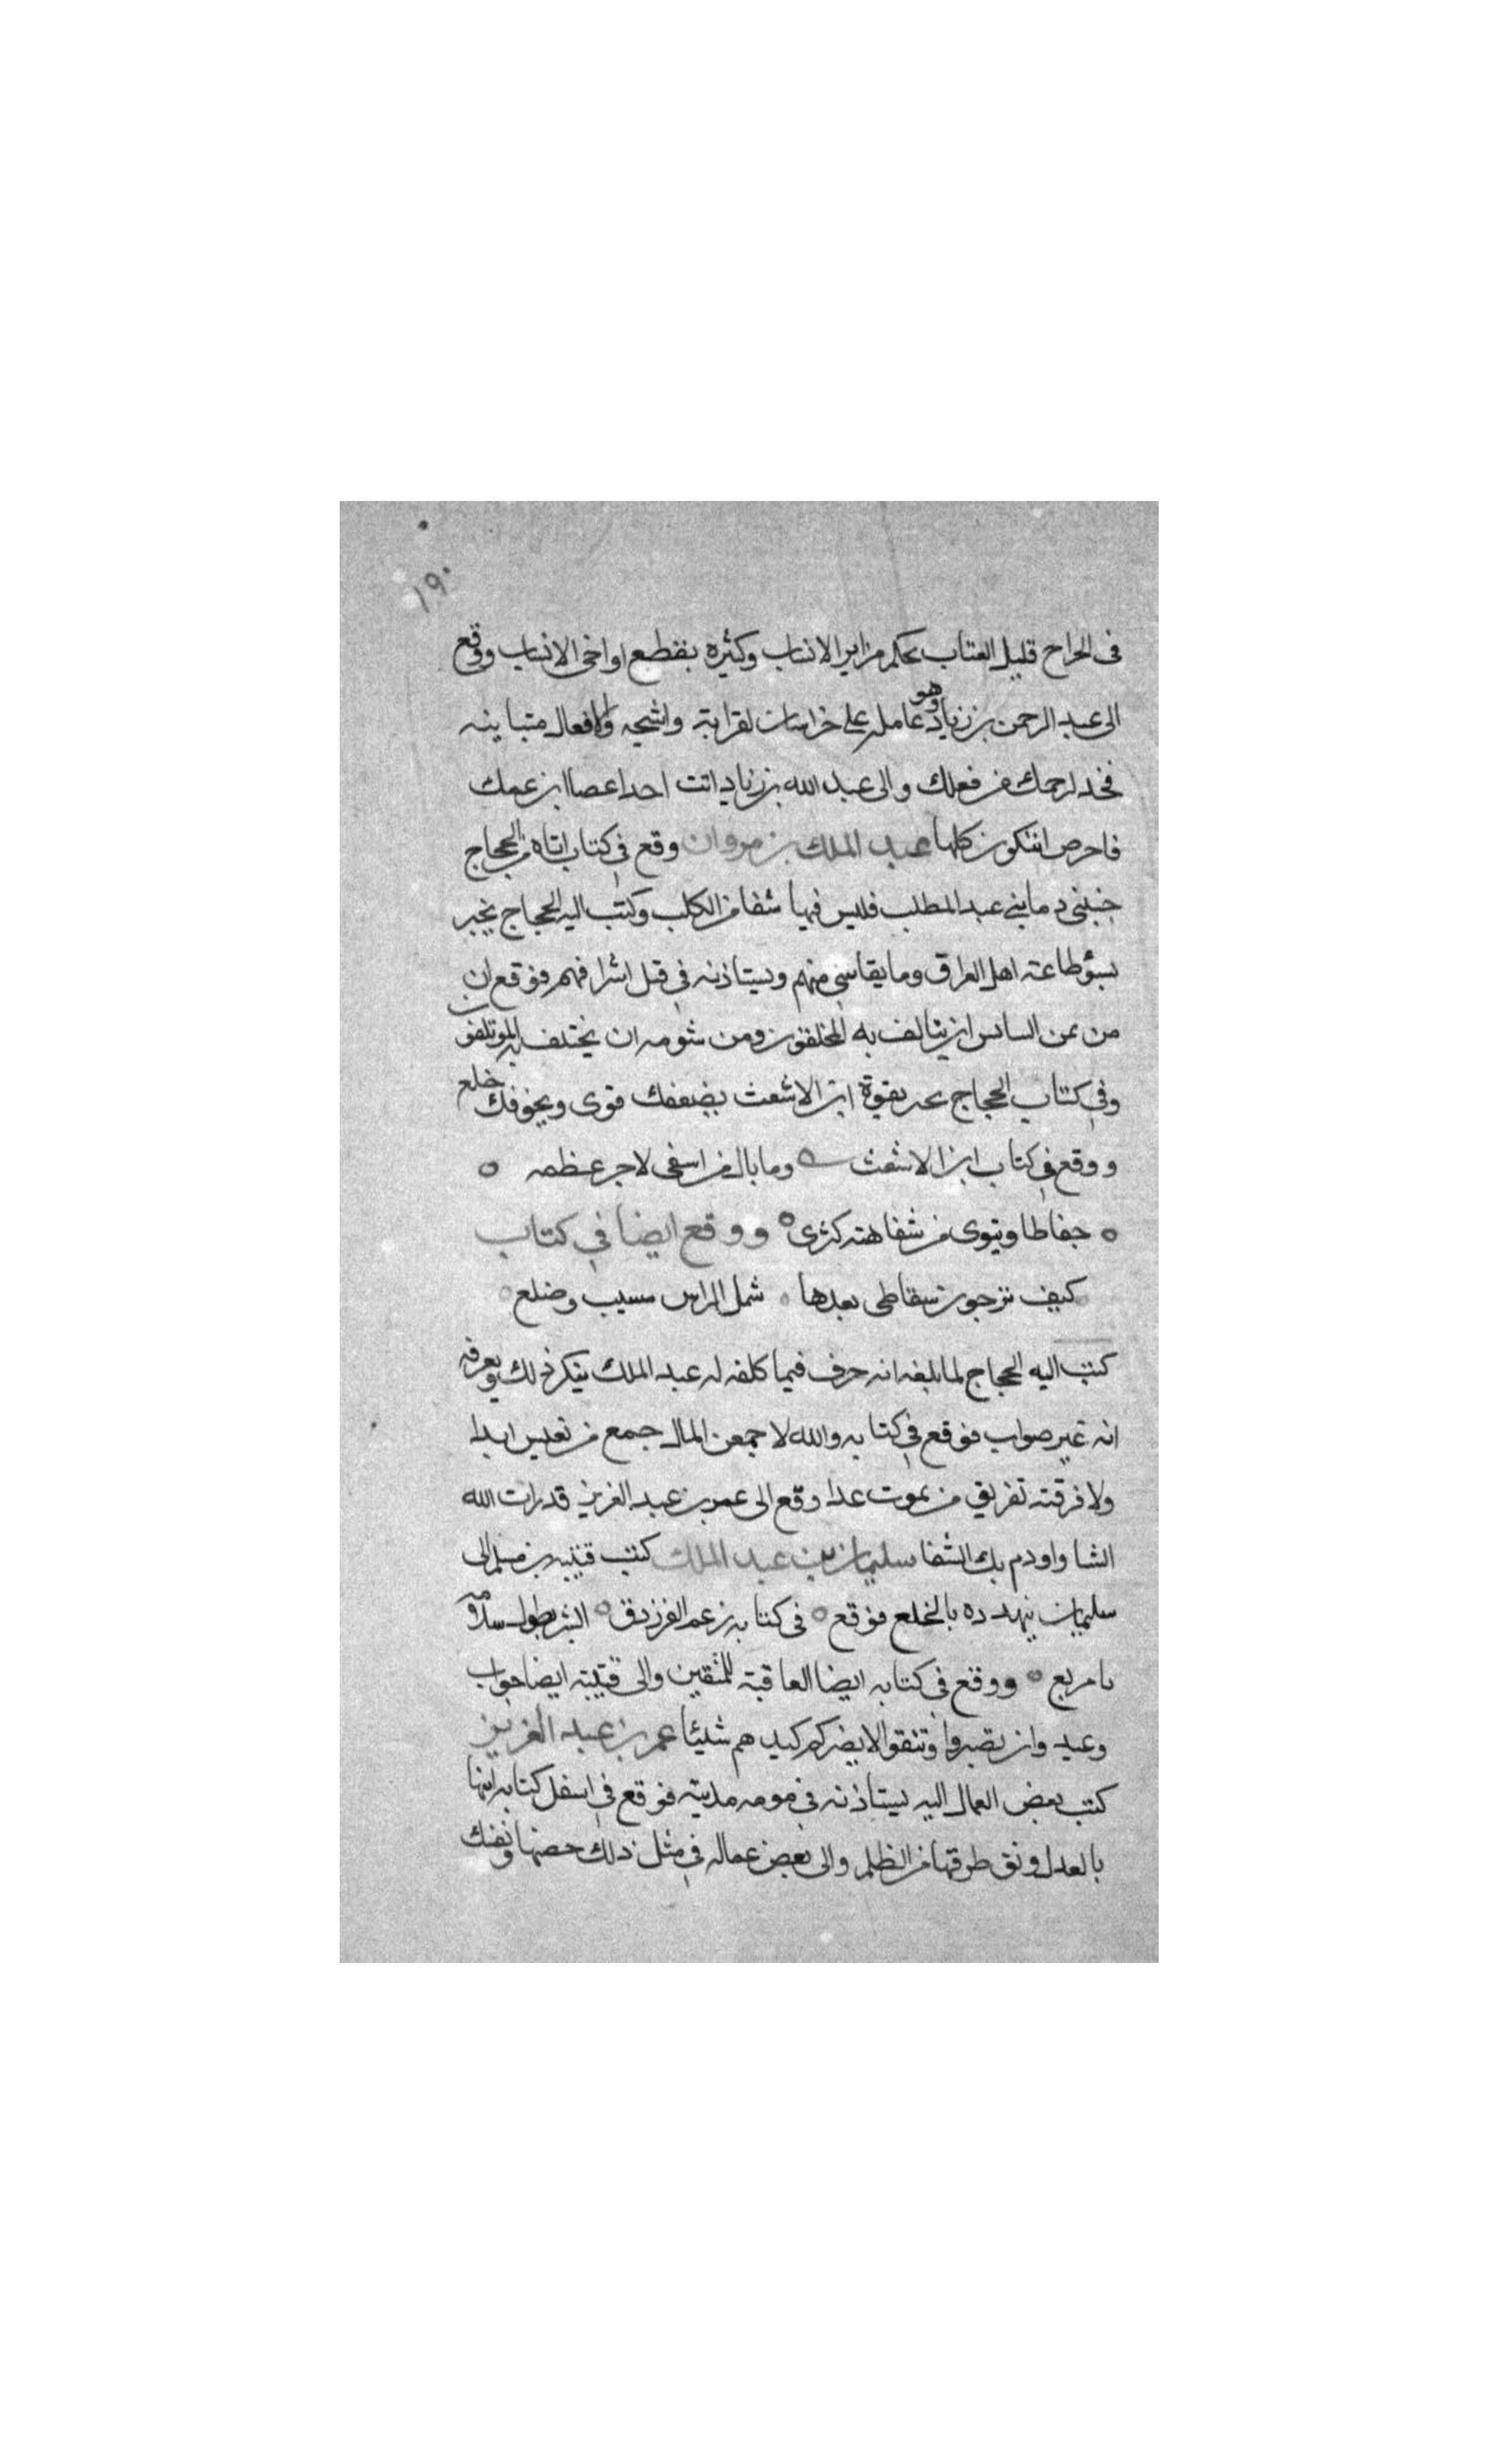 ١٩٠
فى الحراح قليل العتاب يحكم مراير الانساب وكثيره يقطع اواخى الانساب وقع
الى عبد الرحمن بن زياد وهو عامله على خراسان لقرابة واشجه والافعال متباينه
فخذ لرحمك من فعلك والى عبد الله بن زياد انت احد اعصا ابن عمك
فاحرص ان تكون كلها عبد الملك بن مروان وقع فى كتاب اتاه من الحجاج
جنبنى دما بنى عبد المطلب فليس فيها شفا من الكلب وكتب اليه الحجاج يخبر
بسؤ طاعة اهل العراق وما يقاسى منهم ويستاذنه فى قتل اشرافهم فوقع ان
من يمن السايس ان يتالف به المختلفون ومن شومه ان يختلف به الموتلفون
وفى كتاب الحجاج يخبر بقوة ابن الاشعث بضعفك قوى وبخوفك خلع
ووقع فى كتاب ابن الاشعث وما بال من اسعى لاجبر عظمه
حفاظا وينوى من سفاهته كسرى ووقع ايضا فى كتاب
كيف ترجون سقاطى بعدها شمل الراس مشيب وضلع
كتب اليه الحجاج لما بلغه انه حرف فيما كلفه له عبد الملك ينكر ذلك ويعرفه
انه غير صواب فوقع فى كتابه والله لاجمعن المال جمع من يعيش ابدا
ولا فرقته تفريق من يموت غدا وقع الى عمر بن عبد العزيز قد رات الله
الشا واودم بك الشفا سليمان بن عبد الملك كتب قتيبه بن مسلم الى
سليمان يتهدده بالخلع فوقع فى كتابه زعم الفرزدق البشر بطول سلامه
يا مربع ووقع فى كتابه ايضا العاقبة للمتقين والى قتيبة ايضا جواب
وعيد وان تصبروا وتتقوا لا يضركم كيدهم شيئا عمر بن عبد العزيز
كتب بعض العمال اليه يستاذنه فى مرمه مدينته فوقع فى اسفل كتابه ابنها
بالعدل ونق طرقها من الظلم والى بعض عماله فى مثل ذلك حصنها ونفسك